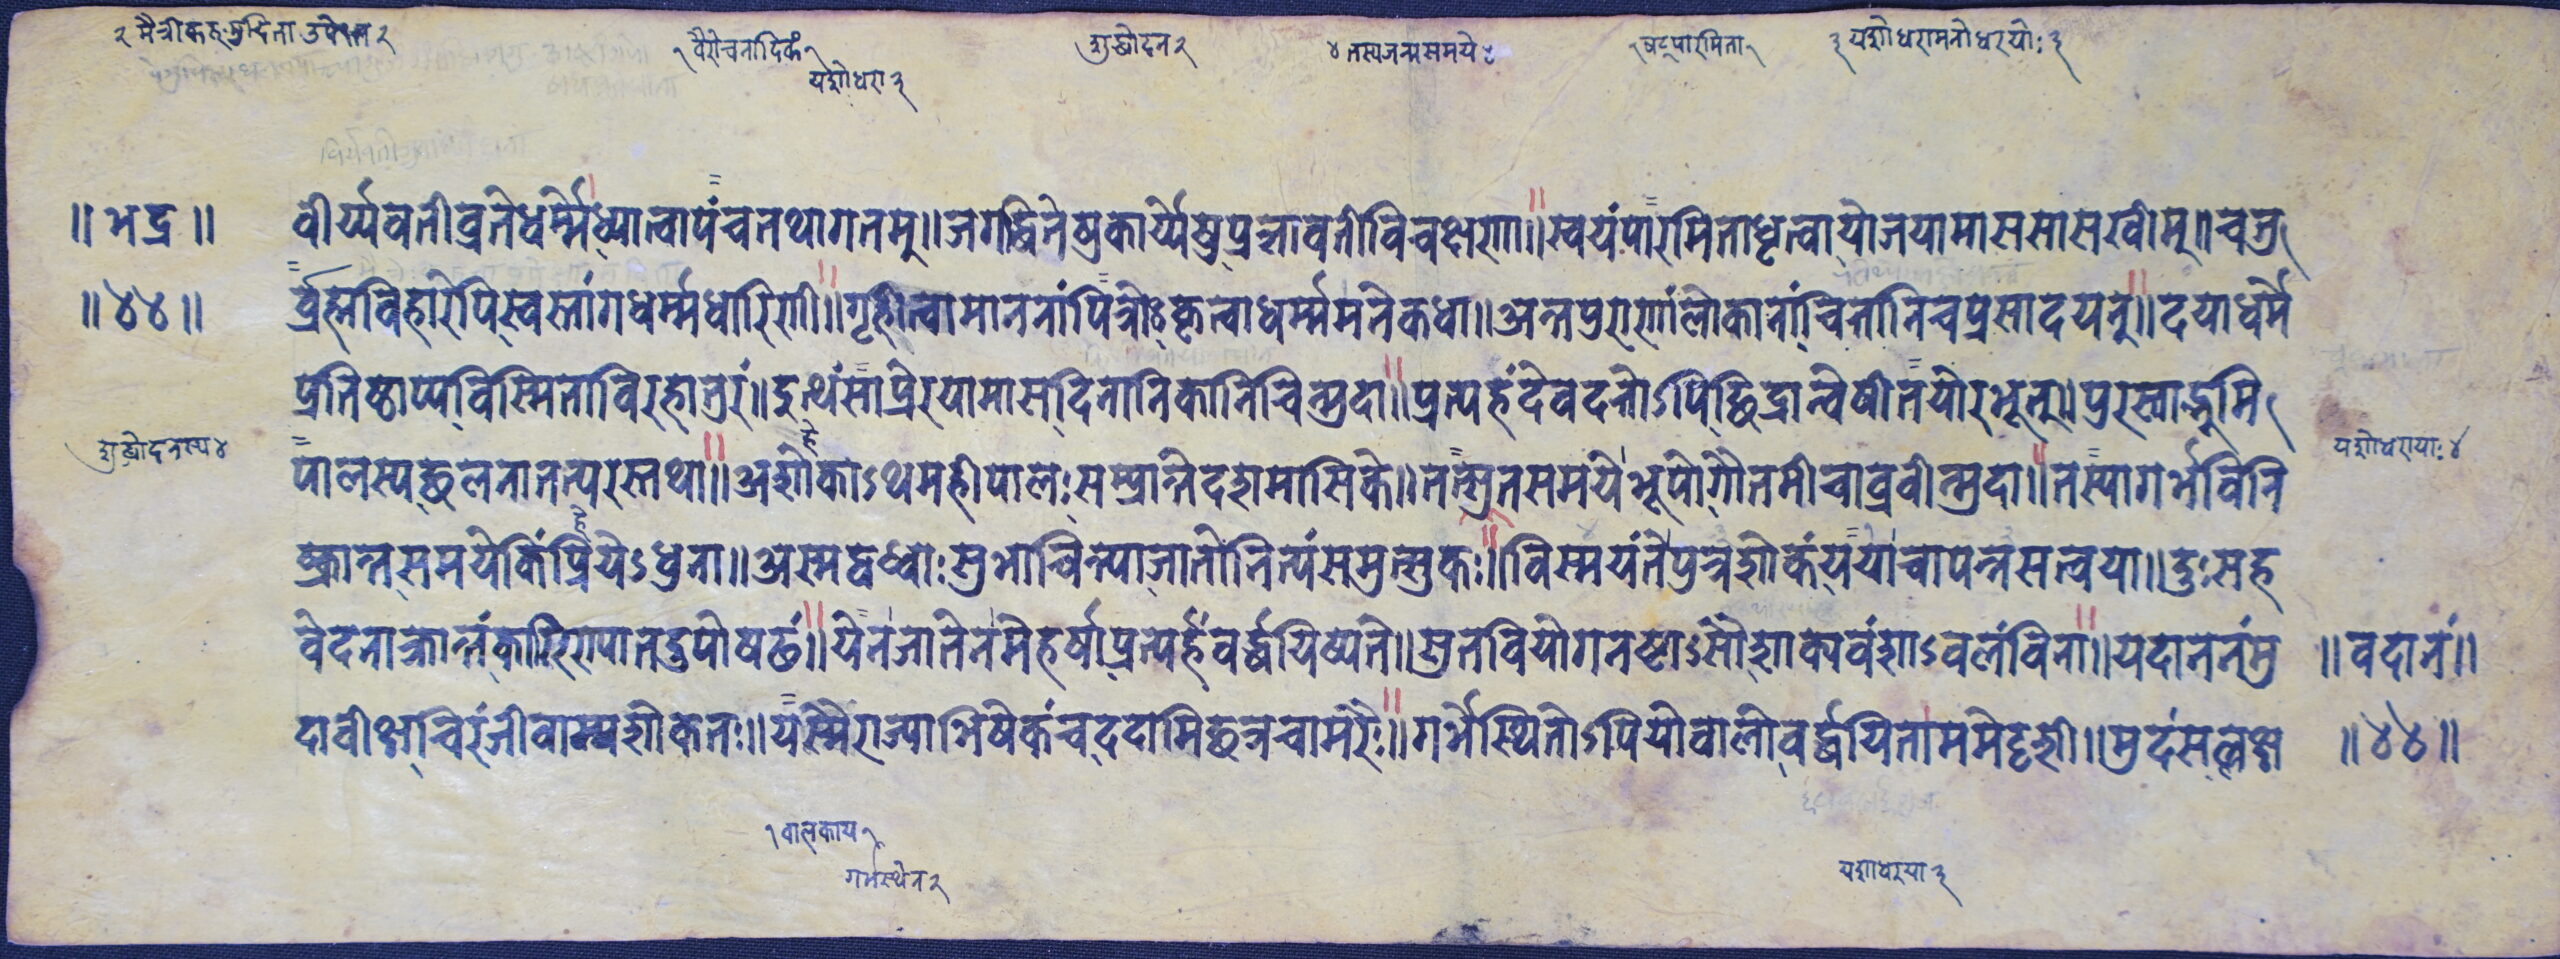 २ मैत्रीकरुणामुदिता उपेक्षा २
१ वैरोचनादिकं १
यशोधरा ३
शुद्धोदन २
४ तस्यजन्मसमये ४
१ षट्पारमिता १
३ यशोधरामनोधरयोः ३
॥ भद्र ॥
वीर्य्यवतीव्रतेधर्म्मेध्यात्वापंचतथागतम्॥जगद्धितेषुकार्य्येषुप्रज्ञावतीविचक्षणा॥स्वयंपारमिताधृत्वायोजयामाससासखीम्॥चतु
॥ ४४ ॥
र्व्रह्मविहारेपिस्वस्नांगधर्म्मधारिणी॥गृहीत्वामाननांपित्रोःकृत्वाधर्म्ममनेकधा॥अन्तपुराणांलोकानांचित्तानिचप्रसादयन्॥दयाधर्मे
प्रतिष्ठाप्यविस्मिताविरहातुरं॥इत्थंसाप्रेरयामासदिनानिकानिचिन्मुदा॥प्रत्यहंदेवदत्तोऽपिछिद्रान्वेषीतयोरभूत्॥पुरस्थाद्भूमि
शुद्धोदनस्य ४
पालस्यछलनातत्परस्तथा॥अशोकोऽथमहीपालःसम्प्राप्तेदशमासिके॥तत्सुतसमयेभूपोगौतमीचाव्रवीन्मुदा॥तस्यागर्भविनि
यशोधरायाः ४
हे
ष्क्रान्तसमयेकिंप्रियेऽधुना॥अस्मद्वध्वोःसुभाचिन्त्याजातोनित्यंसमुत्सुकः॥विस्मयंतेपुत्रशोकंययाचापन्नसत्वया॥दुःसह
हे
वेदनाक्रान्तंकारिणोपातदुपोषढं॥येनजातेनमेहर्षाप्रत्यहंवर्द्धयिष्यते॥सुतवियोगनष्टाऽसौशाक्यवंशाऽवलंविना॥यदाननंमु
॥ वदानं ॥
दावीक्षचिरंजीवाम्यशोकतः॥यस्मैराज्याभिषेकंचददामिछत्रचामरैः॥गर्भेस्थितोऽपियोवालोवर्द्धयिताममेदृशी॥मुदंसत्लक्ष
॥ ४४ ॥
१ वालकाय १
गर्भस्थेन २
यशोधरया ३